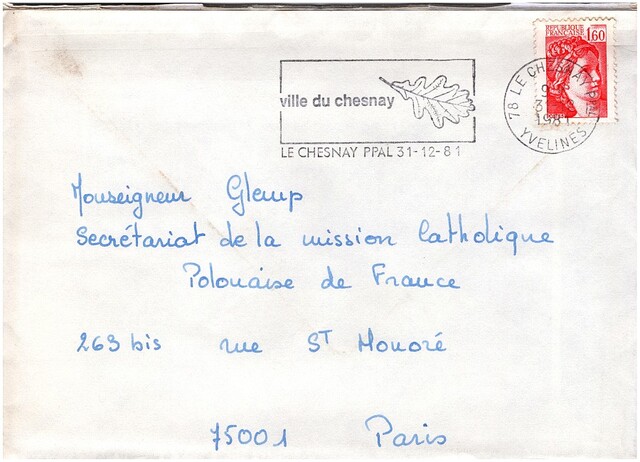 REPUBLIQUE
FRANÇAISE 1,60
ville du chesnay
LE CHESNAY PPAL 31-12-81
78 LE CHESNAY
1981
YVELINES
Monseigneur Glemp
Secrétariat de la mission Catholique
Polonaise de France
263 bis rue St Honoré
75001 Paris